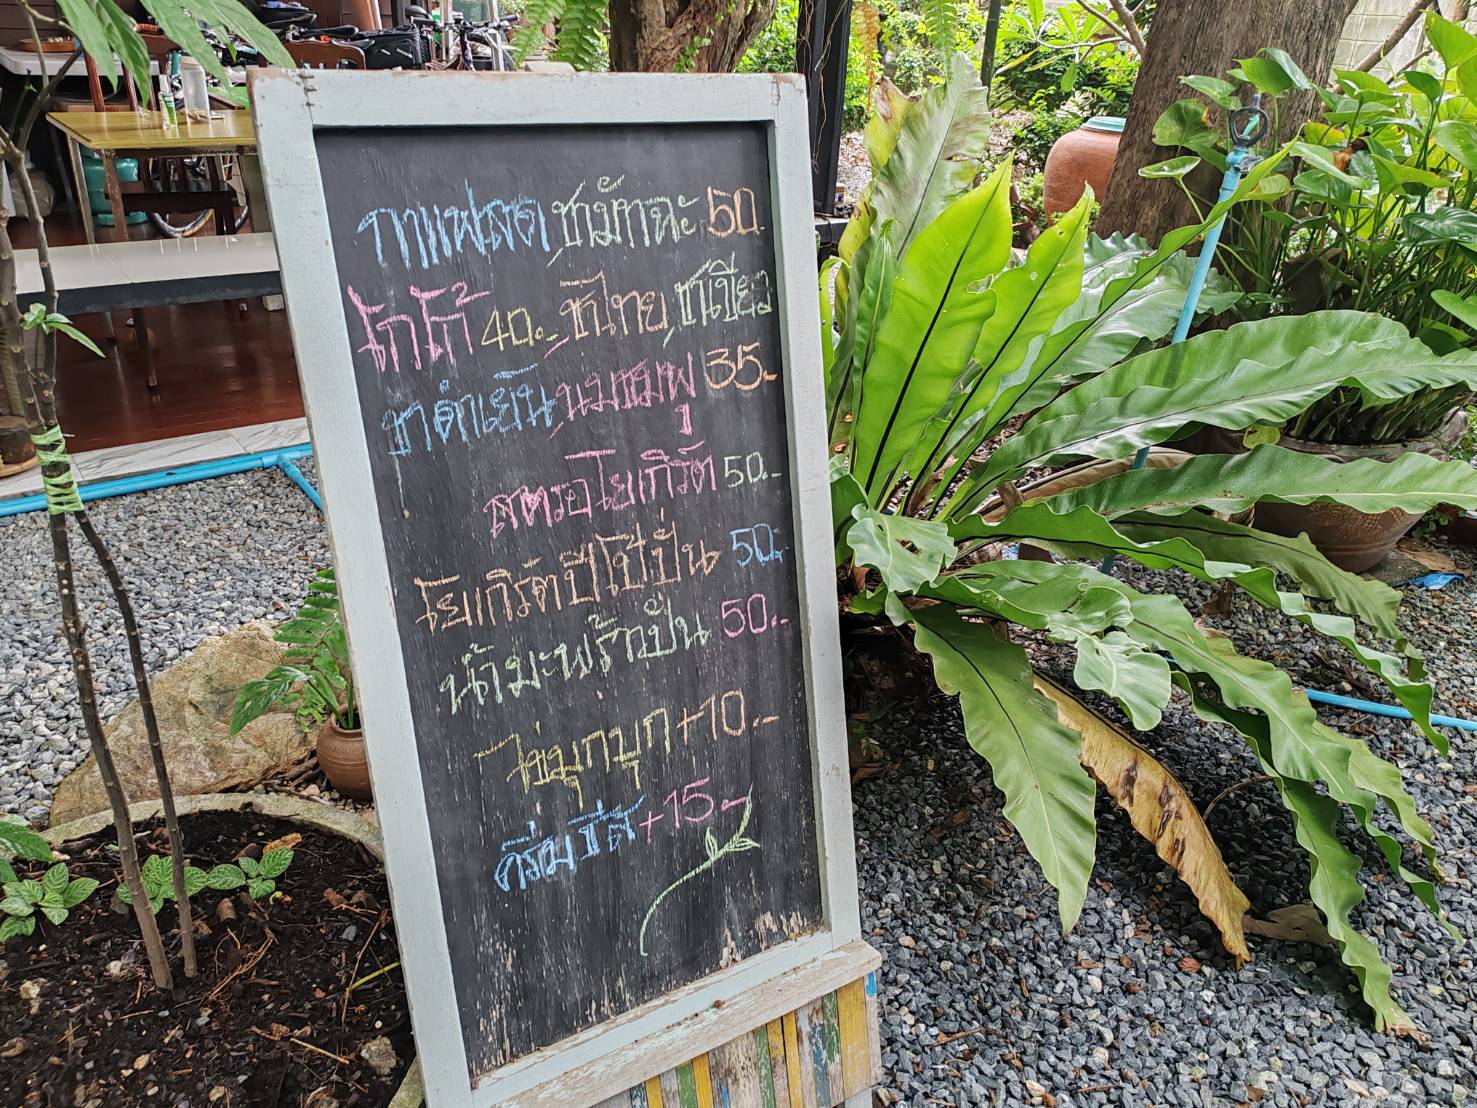 กาแฟสด ชามัทฉะ 50.-
โกโก้ 40.- ชาไทย ชาเขียว
ชาดำเย็น นมชมพู 35.-
สตรอโยเกิร์ต 50.-
โยเกิร์ตปีโป้ปั่น 50.-
น้ำมะพร้าวปั่น 50.-
ไข่มุกบุก +10.-
ครีมชีส +15.-